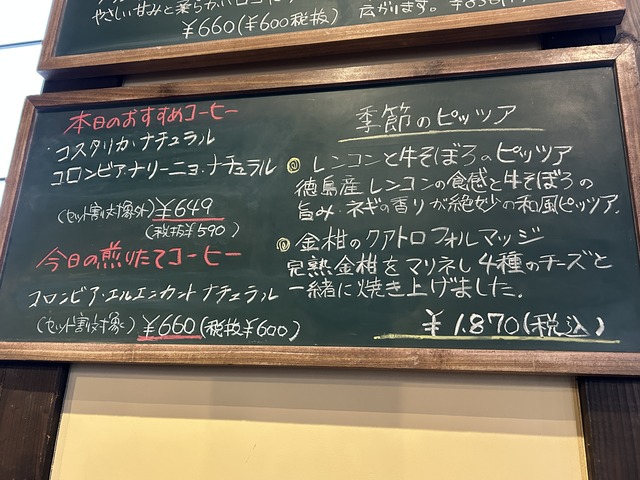 やさしい甘みと柔らかい口
¥660(¥600税抜)
広がります。
本日のおすすめコーヒー
コスタリカ・ナチュラル
コロンビア・ナリーニョ・ナチュラル
(セット割対象外)¥649
(税抜¥590)
今日の煎りたてコーヒー
コロンビア・エルエンカント ナチュラル
(セット割対象) ¥660(税抜¥600)
季節のピッツァ
◎ レンコンと牛そぼろのピッツア
徳島産レンコンの食感と牛そぼろの
旨み・ネギの香りが絶妙の和風ピッツァ.
◎ 金柑のクアトロフォルマッジ
完熟金柑をマリネし4種のチーズと
一緒に焼き上げました.
¥1.870(税込)